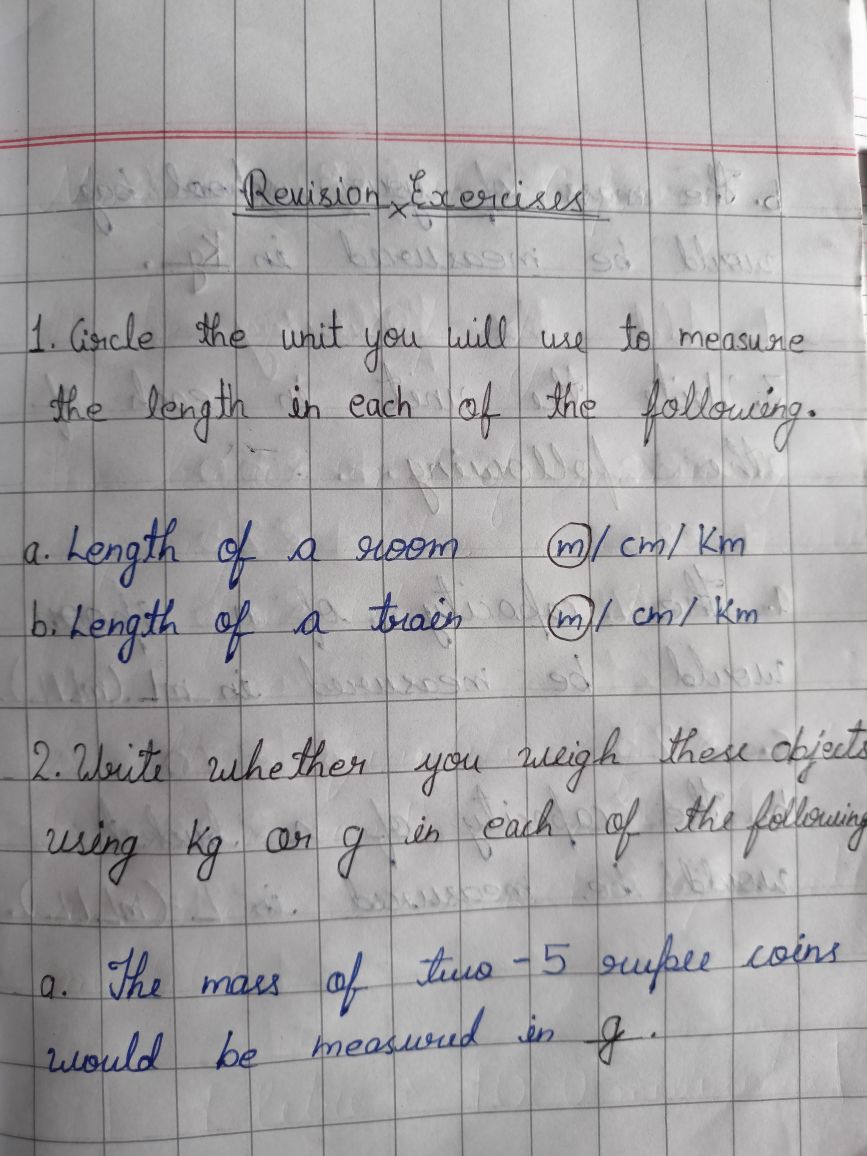 Revision Exercises
1. Circle the unit you will use to measure
the length in each of the following.
a. Length of a room m/ cm/ Km
b. Length of a train m/ cm/ Km
2. Write whether you weigh these objects
using Kg or g in each of the following
a. The mass of two - 5 rupee coins
would be measured in g.